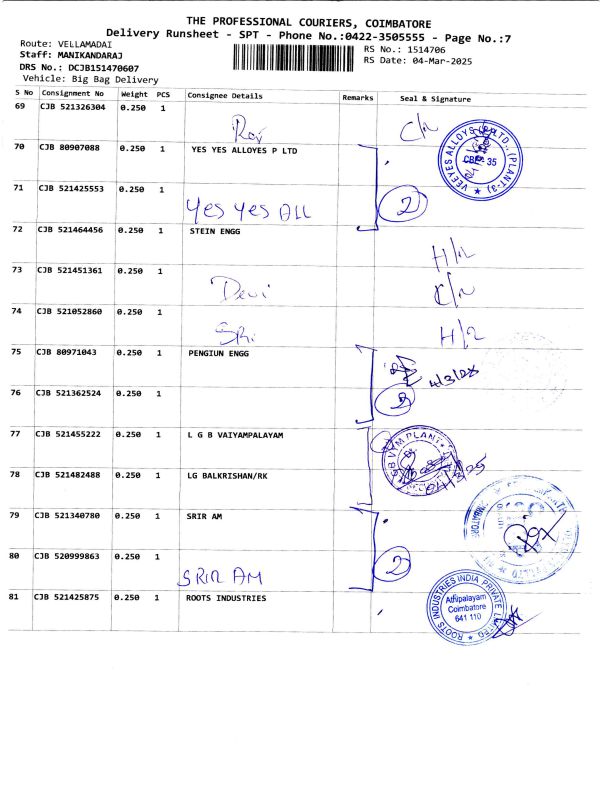 THE PROFESSIONAL COURIERS, COIMBATORE
Delivery Runsheet - SPT - Phone No.:0422-3505555 - Page No.:7
Route: VELLAMADAI
Staff: MANIKANDARAJ
DRS No.: DCJB151470607
Vehicle: Big Bag Delivery
RS No.: 1514706
RS Date: 04-Mar-2025
S No Consignment No Weight PCS Consignee Details Remarks Seal & Signature
69 CJB 521326304 0.250 1
Raj
70 CJB 80907088 0.250 1 YES YES ALLOYES P LTD
VEEYES ALLOYS (P) LTD., (PLANT-3)
CBE - 35
71 CJB 521425553 0.250 1
Yes Yes ALL 2
72 CJB 521464456 0.250 1 STEIN ENGG
73 CJB 521451361 0.250 1
Devi
74 CJB 521052860 0.250 1
SRi
75 CJB 80971043 0.250 1 PENGIUN ENGG
4/3/25
76 CJB 521362524 0.250 1
2
77 CJB 521455222 0.250 1 L G B VAIYAMPALAYAM
78 CJB 521482488 0.250 1 LG BALKRISHAN/RK
79 CJB 521340780 0.250 1 SRIR AM
80 CJB 520999863 0.250 1
SRIR AM 2
81 CJB 521425875 0.250 1 ROOTS INDUSTRIES
ROOTS INDUSTRIES INDIA PRIVATE LIMITED
Athipalayam
Coimbatore
641 110